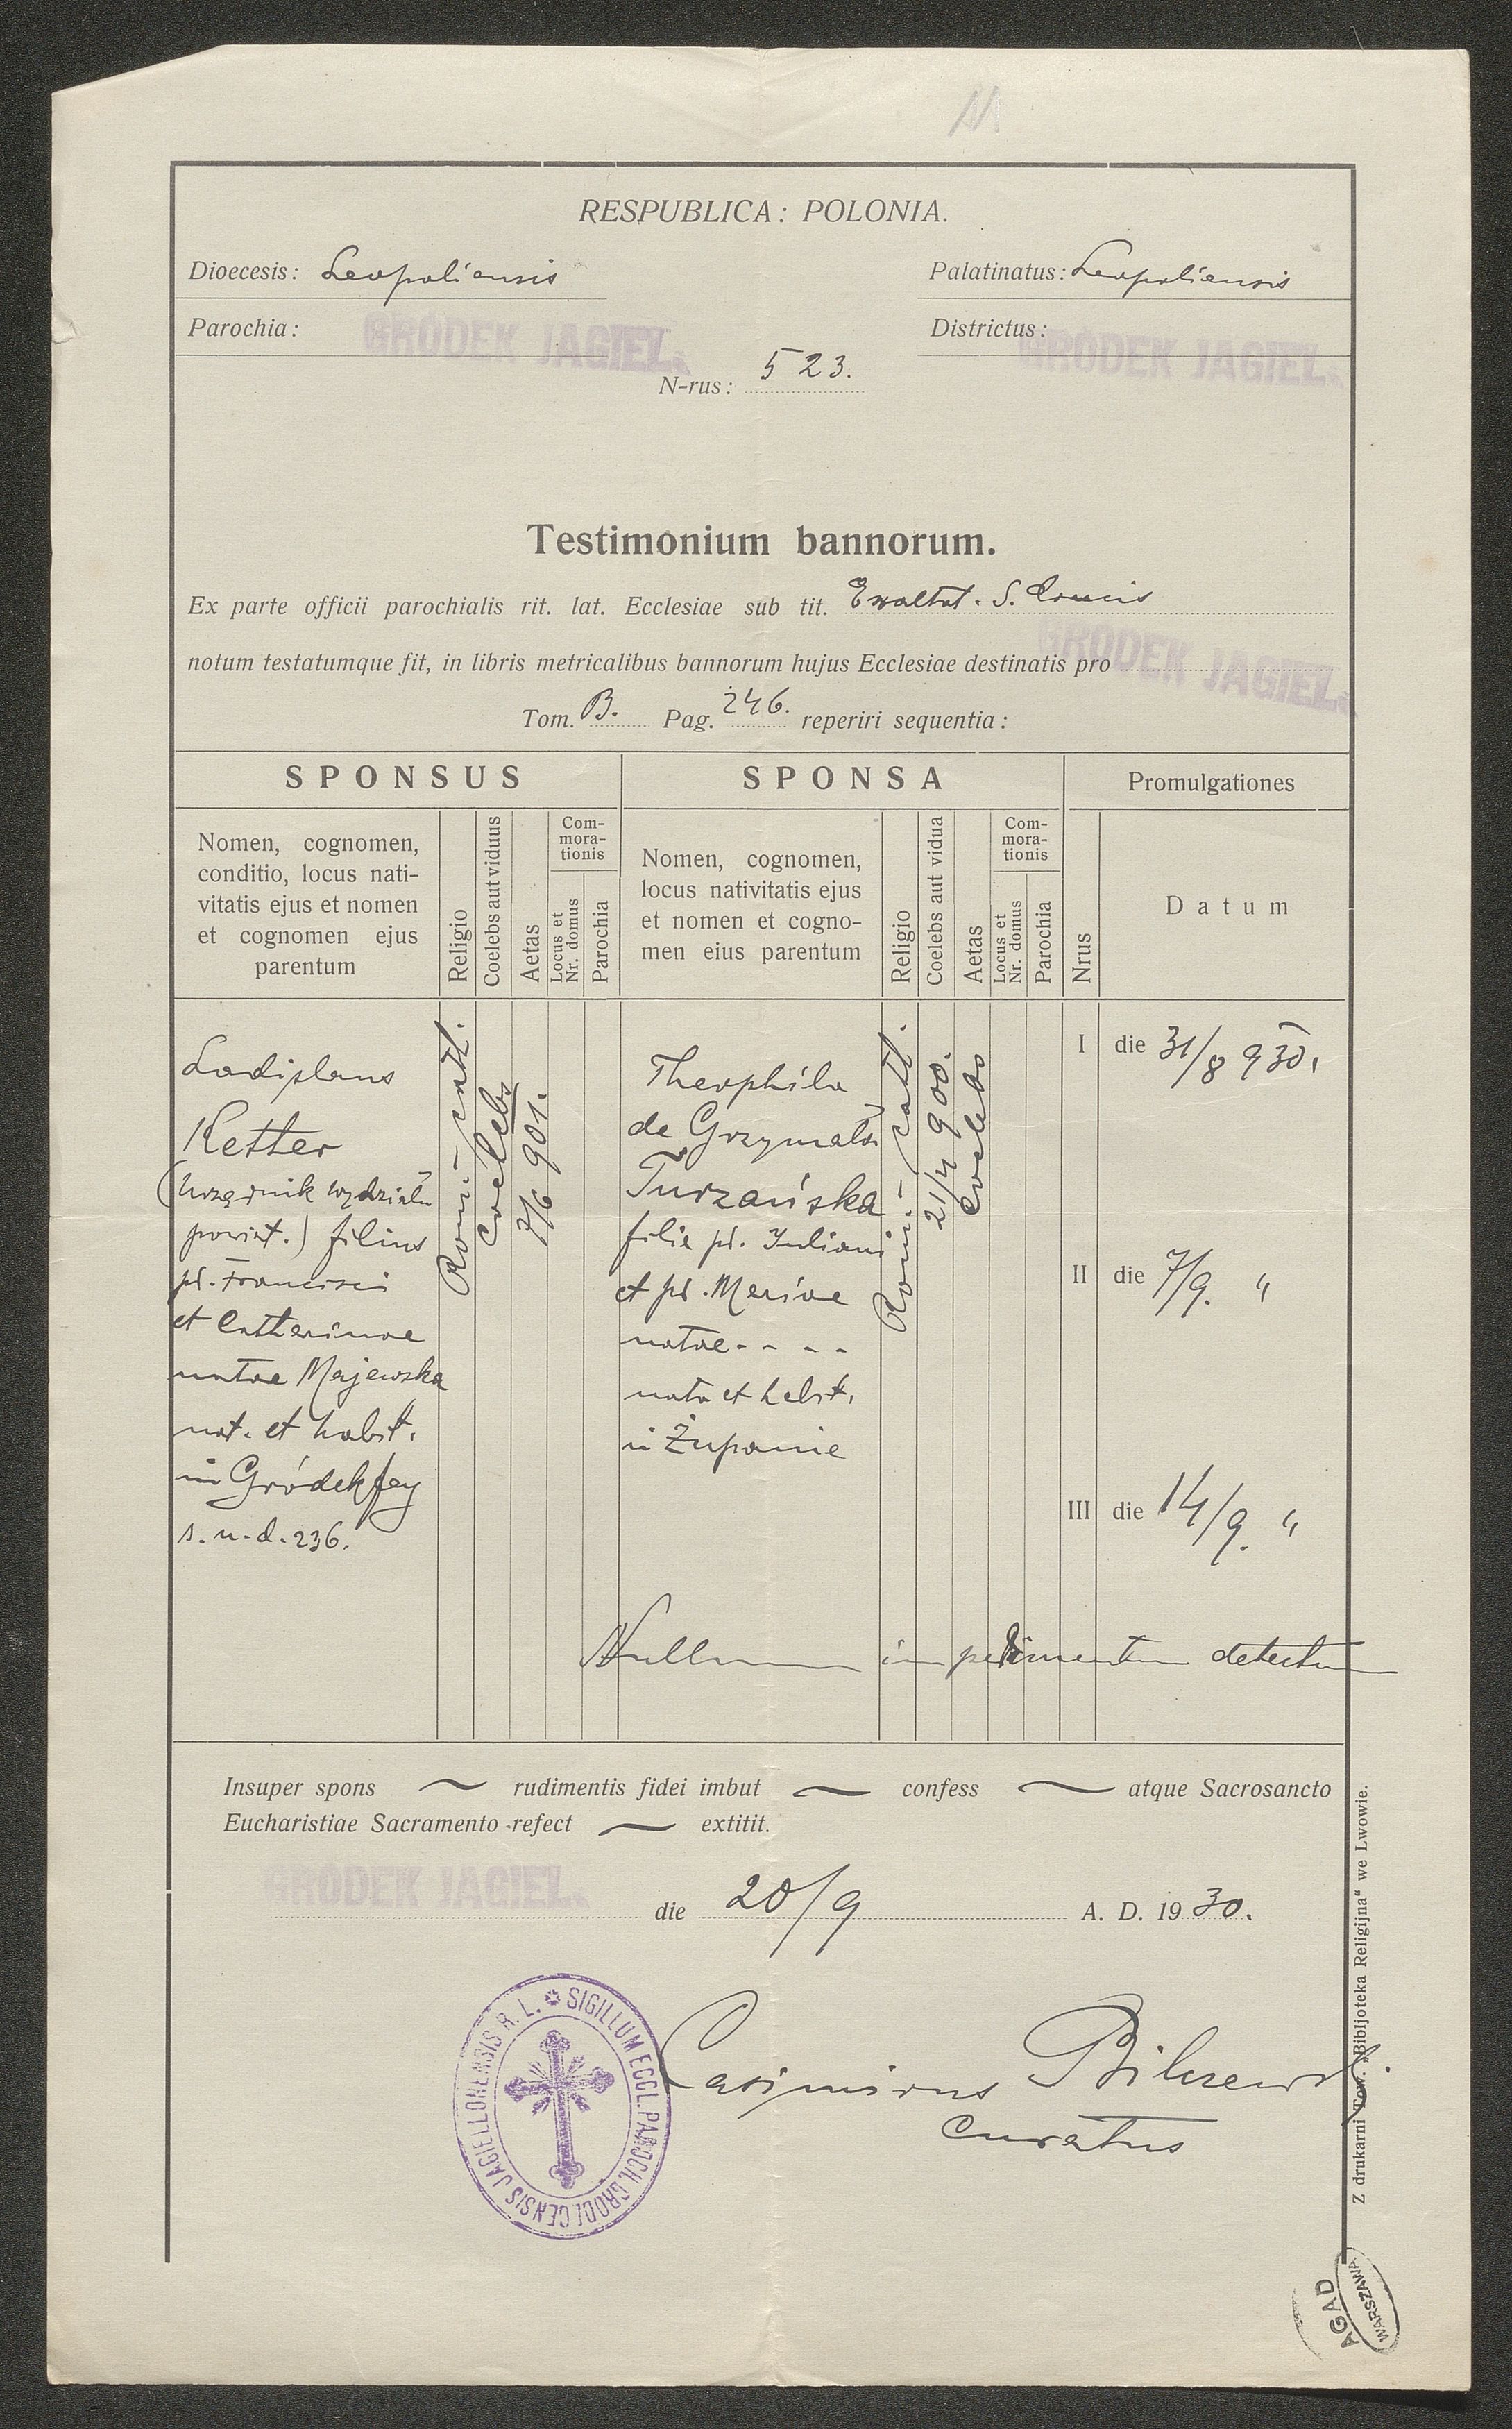 11
RESPUBLICA: POLONIA.
Dioecesis: Leopoliensis
Palatinatus: Leopoliensis
Parochia: GRODEK JAGIEL.
Districtus: GRODEK JAGIEL.
N-rus: 523.
Testimonium bannorum.
Ex parte officii parochialis rit. lat. Ecclesiae sub tit. Exaltat. S. Crucis
notum testatumque fit, in libris metricalibus bannorum hujus Ecclesiae destinatis pro GRODEK JAGIEL.
Tom. B. Pag. 246. reperiri sequentia:
SPONSUS
SPONSA
Promulgationes
Nomen, cognomen,
conditio, locus nati-
vitatis ejus et nomen
et cognomen ejus
parentum
Religio
Coelebs aut viduus
Aetas
Com-
mora-
tionis
Locus et
Nr. domus
Parochia
Nomen, cognomen,
locus nativitatis ejus
et nomen et cogno-
men eius parentum
Religio
Coelebs aut vidua
Aetas
Com-
mora-
tionis
Locus et
Nr. domus
Parochia
Nrus
Datum
Ladislaus
Ketter
(urzędnik wydziału
powiat.) filius
pl. Francisci
et Catherinae
natae Majewska
nat. et habit.
in Gródek Jag
s. n. d. 236.
Rom.- cath.
coelebs
7/6 901.
Theophila
de Grzymała
Turzańska
filia pl. Juliani
et pl. Mariae
natae - - - -
nata et habit.
in Żupanie
Rom.- cath.
21/4 900.
coelebs
I die 31/8 930.
II die 7/9. "
III die 14/9. "
Nullum impedimentum detectum
Insuper spons ~ rudimentis fidei imbut ~ confess ~ atque Sacrosancto
Eucharistiae Sacramento refect ~ extitit.
GRODEK JAGIEL. die 20/9 A. D. 1930.
SIGILLUM ECCL. PAROCH. GRODECENSIS JAGIELLONENSIS R. L.
Casimirus Bilczewski
curatus
Z drukarni Tow. „Bibljoteka Religijna" we Lwowie.
AGAD
WARSZAWA